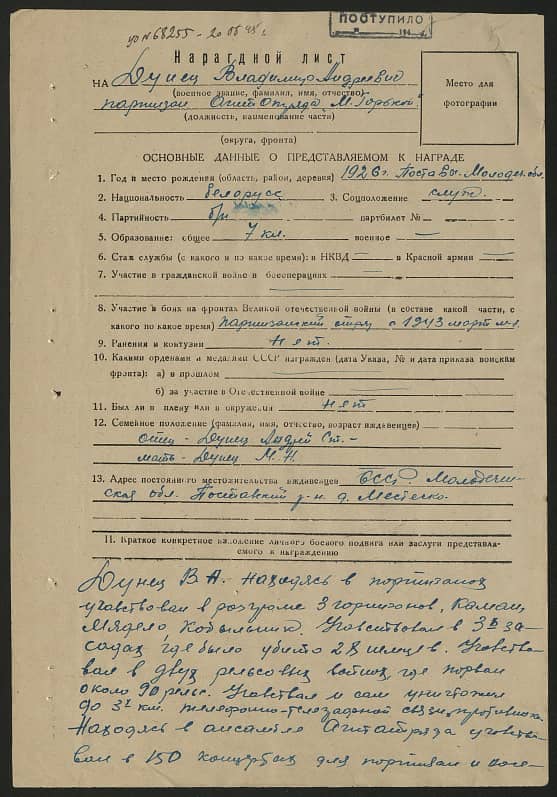 уо №68255 - 20 05 45 г.
ПОСТУПИЛО
Нарагдной лист
НА Дунец Владимир Андреевич
(военное звание, фамилия, имя, отчество)
партизан Агитотряда „М. Горького"
(должность, наименование части)
(округа, фронта)
Место для
фотографии
ОСНОВНЫЕ ДАННЫЕ О ПРЕДСТАВЛЯЕМОМ К НАГРАДЕ
1. Год и место рождения (область, район, деревня) 1926 г. Поставы Молодеч. обл.
2. Национальность белорусс 3. Соцположение служ.
4. Партийность б/п партбилет № —
5. Образование: общее 7 кл. военное —
6. Стаж службы (с какого и по какое время): в НКВД — в Красной армии —
7. Участие в гражданской войне в боеоперациях —
8. Участие в боях на фронтах Великой отечественной войны (в составе какой части, с
какого по какое время) партизанский отряд с 1943 март м-ц
9. Ранения и контузии нят.
10. Какими орденами и медалями СССР награжден (дата Указа, № и дата приказа войскам
фронта): а) в прошлом
б) за участие в Отечественной войне
11. Был ли в плену или в окружении нят
12. Семейное положение (фамилия, имя, отчество, возраст иждавенцев)
отец - Дунец Андрей Ст. -
мать - Дунец М. Н.
13. Адрес постоянного местожительства иждавенцев БССР Молодечен-
ская обл. Поставский р-н д. Местечко.
11. Краткое конкретное изложение личного боевого подвига или заслуги представля-
емого к награждению
Дунец В А. Находясь в портизанох
учавствовал в розгроме 3 горнизонов, Камаи
Мядело, Кобыльник. Учавствовал в 3х за-
садах, где было убито 28 немцев. Учавство-
вал в двух рельсовых войнох, где порвал
около 90 рельс. Учавствал и сам уничтожил
до 3х км. телефонно-телеграфной связи противника.
Находясь в ансамбле Агитотряда учавство-
вал в 150 концертах для портизан и насе-